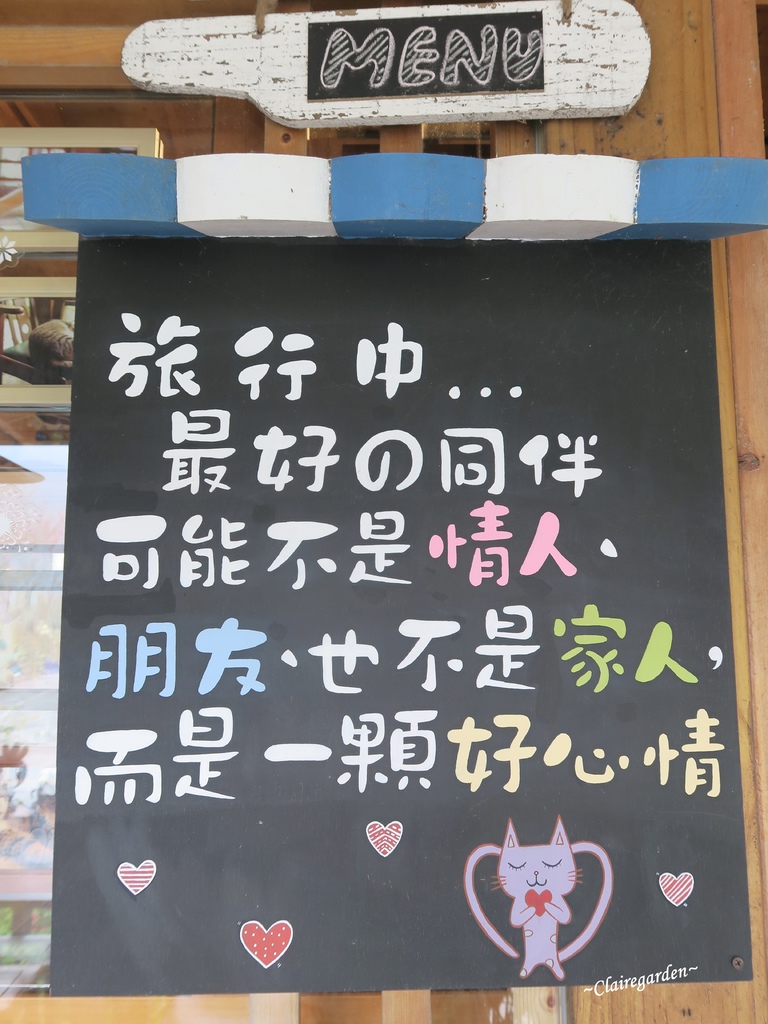 MENU
旅行中...
最好の同伴
可能不是情人、
朋友、也不是家人,
而是一顆好心情
~Clairegarden~